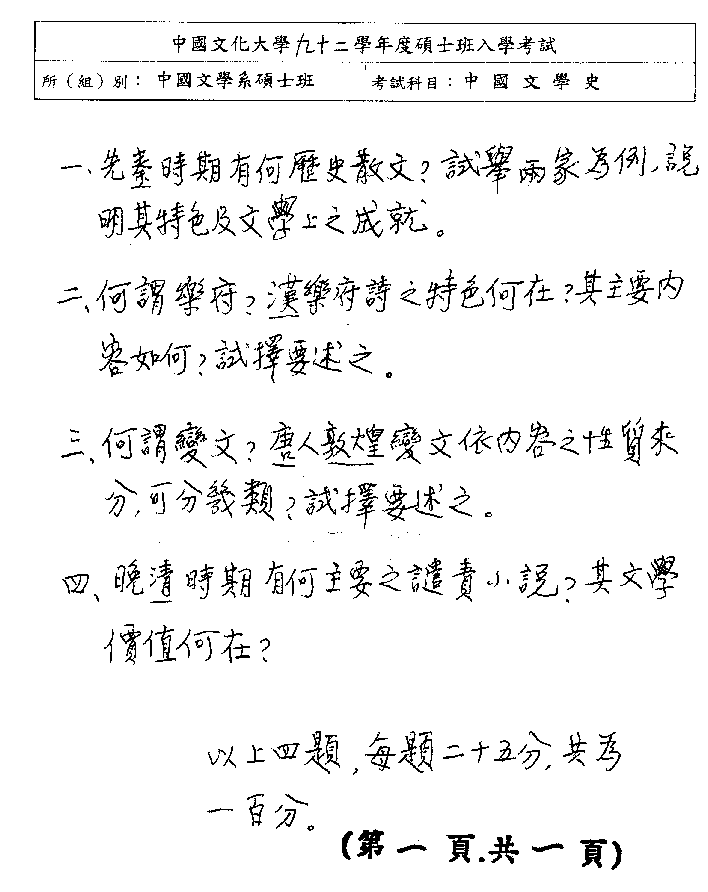 中國文化大學九十二學年度碩士班入學考試
所（組）別：中國文學系碩士班　考試科目：中國文學史
一、先秦時期有何歷史散文？試舉兩家為例，說
明其特色及文學上之成就。
二、何謂樂府？漢樂府詩之特色何在？其主要內
容如何？試擇要述之。
三、何謂變文？唐人敦煌變文依內容之性質來
分，可分幾類？試擇要述之。
四、晚清時期有何主要之譴責小說？其文學
價值何在？
以上四題，每題二十五分，共為
一百分。
(第一頁.共一頁)